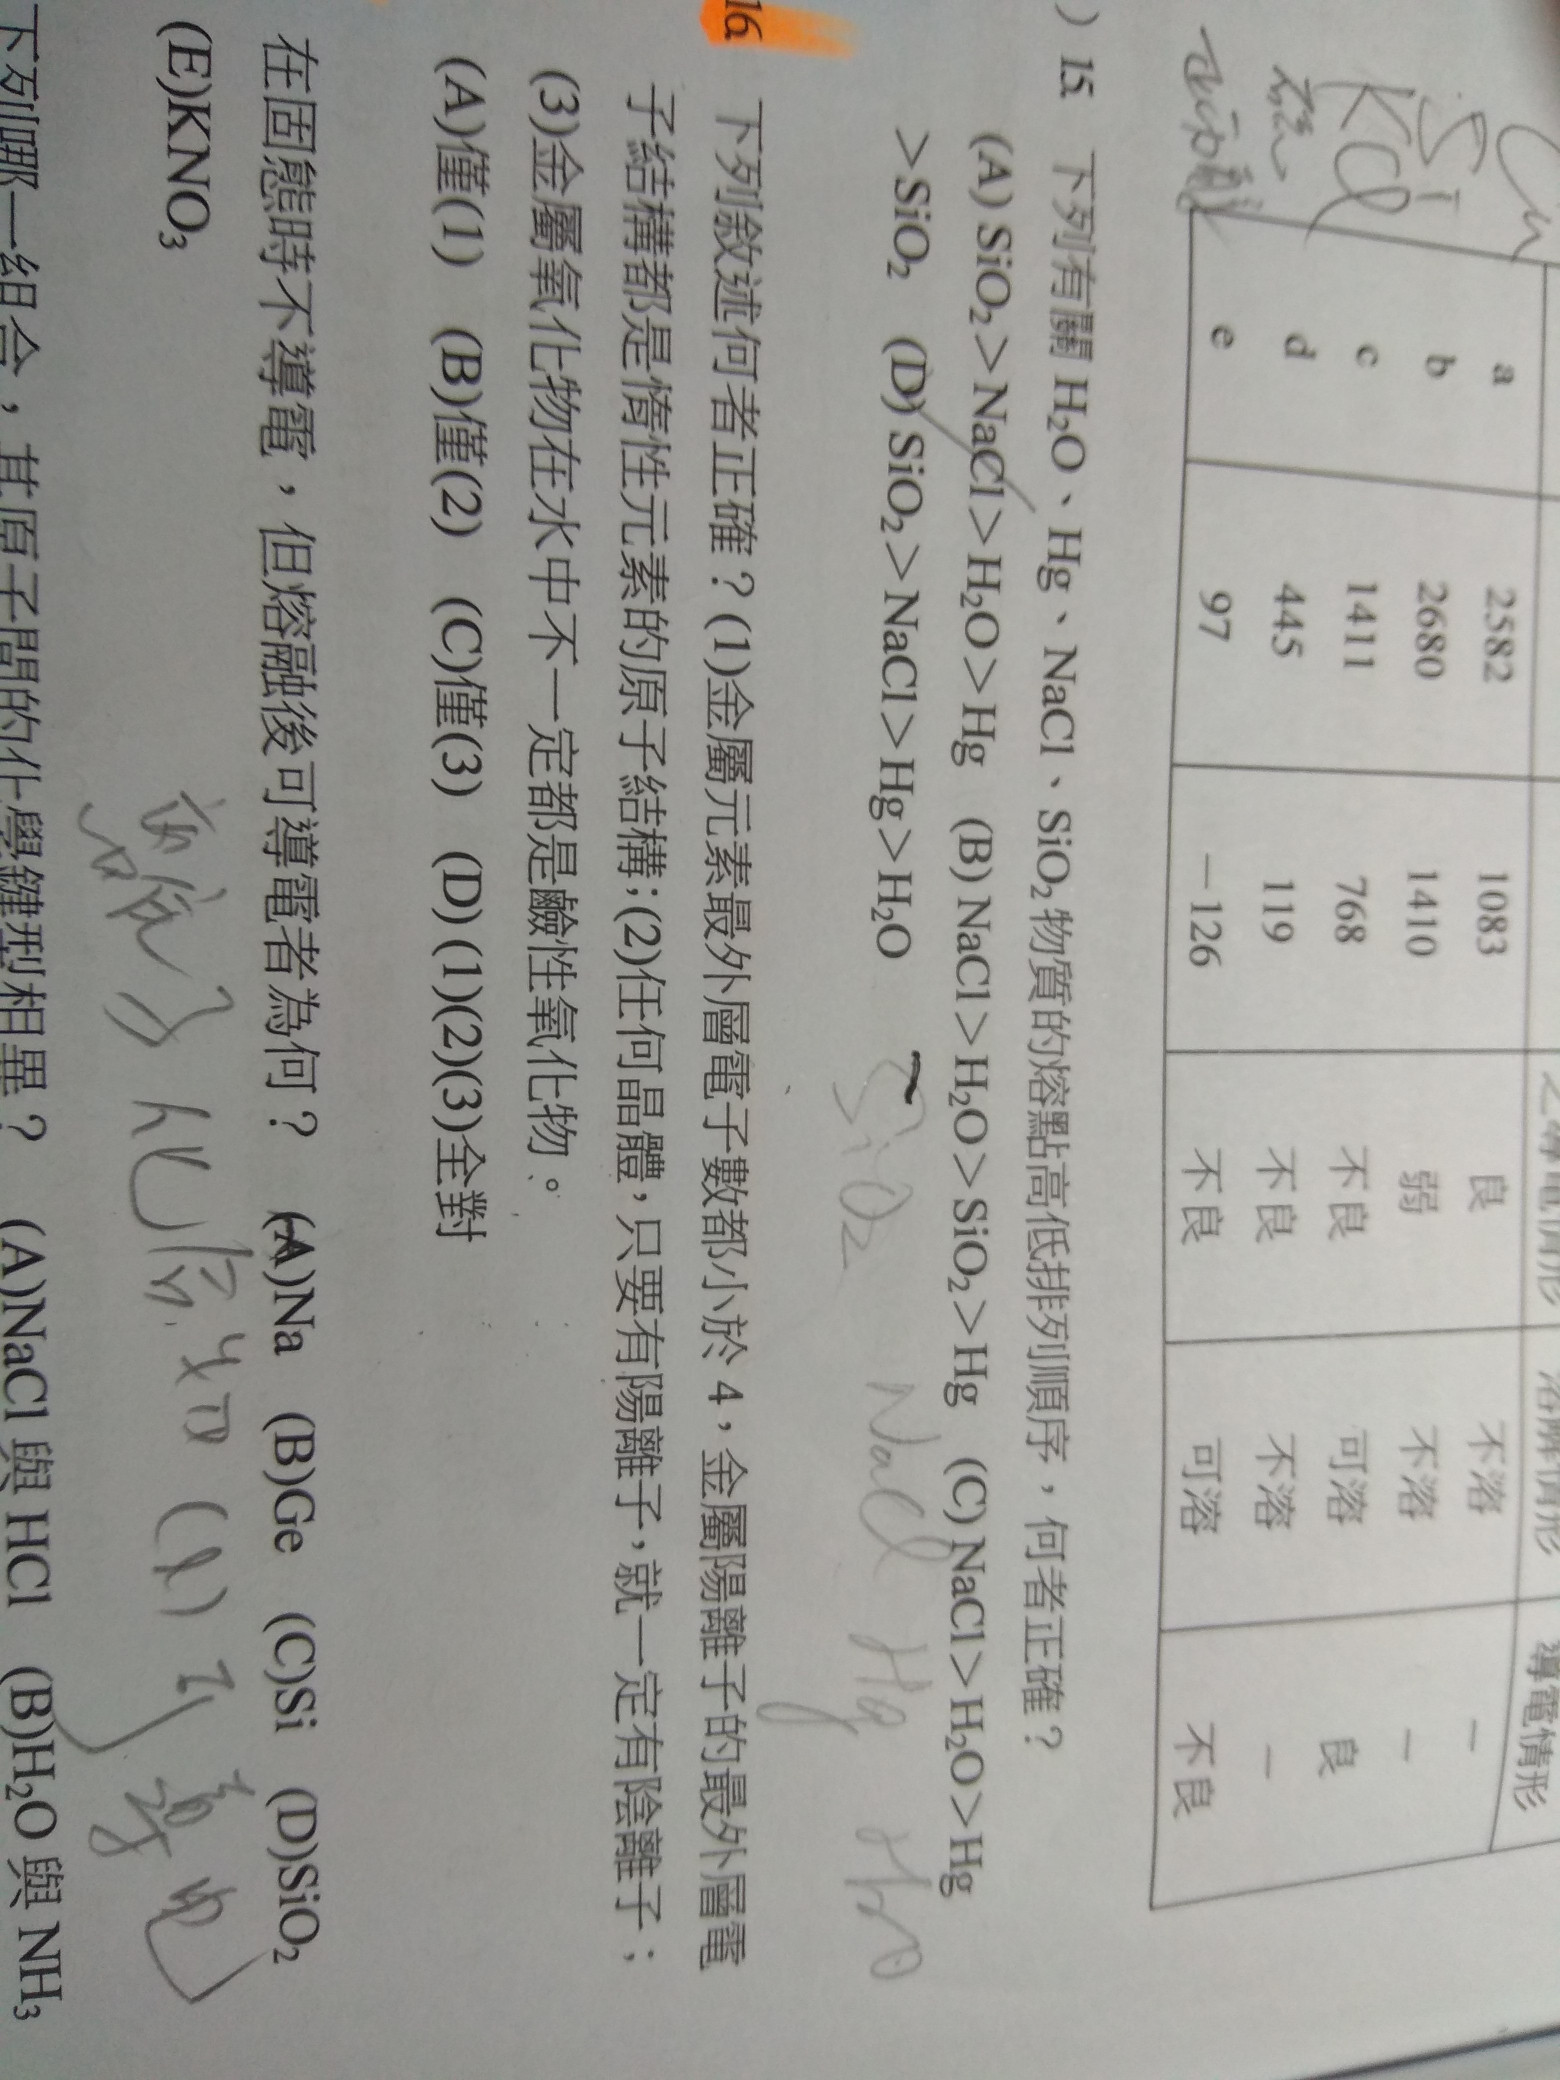 Cu
Si
KCl
a 2582 1083 良 不溶 —
b 2680 1410 弱 不溶 —
c 1411 768 不良 可溶 良
d 445 119 不良 不溶 —
e 97 −126 不良 可溶 不良
導電情形
) 15. 下列有關 H₂O、Hg、NaCl、SiO₂ 物質的熔點高低排列順序，何者正確？
(A) SiO₂＞NaCl＞H₂O＞Hg (B) NaCl＞H₂O＞SiO₂＞Hg (C) NaCl＞H₂O＞Hg
＞SiO₂ (D) SiO₂＞NaCl＞Hg＞H₂O
SiO₂ NaCl Hg H₂O
16. 下列敘述何者正確？(1)金屬元素最外層電子數都小於 4，金屬陽離子的最外層電
子結構都是惰性元素的原子結構；(2)任何晶體，只要有陽離子，就一定有陰離子；
(3)金屬氧化物在水中不一定都是鹼性氧化物。
(A)僅(1) (B)僅(2) (C)僅(3) (D) (1)(2)(3)全對
在固態時不導電，但熔融後可導電者為何？ (A)Na (B)Ge (C)Si (D)SiO₂
(E)KNO₃
下列哪一組合，其原子間的化學鍵型相異？ (A)NaCl 與 HCl (B)H₂O 與 NH₃